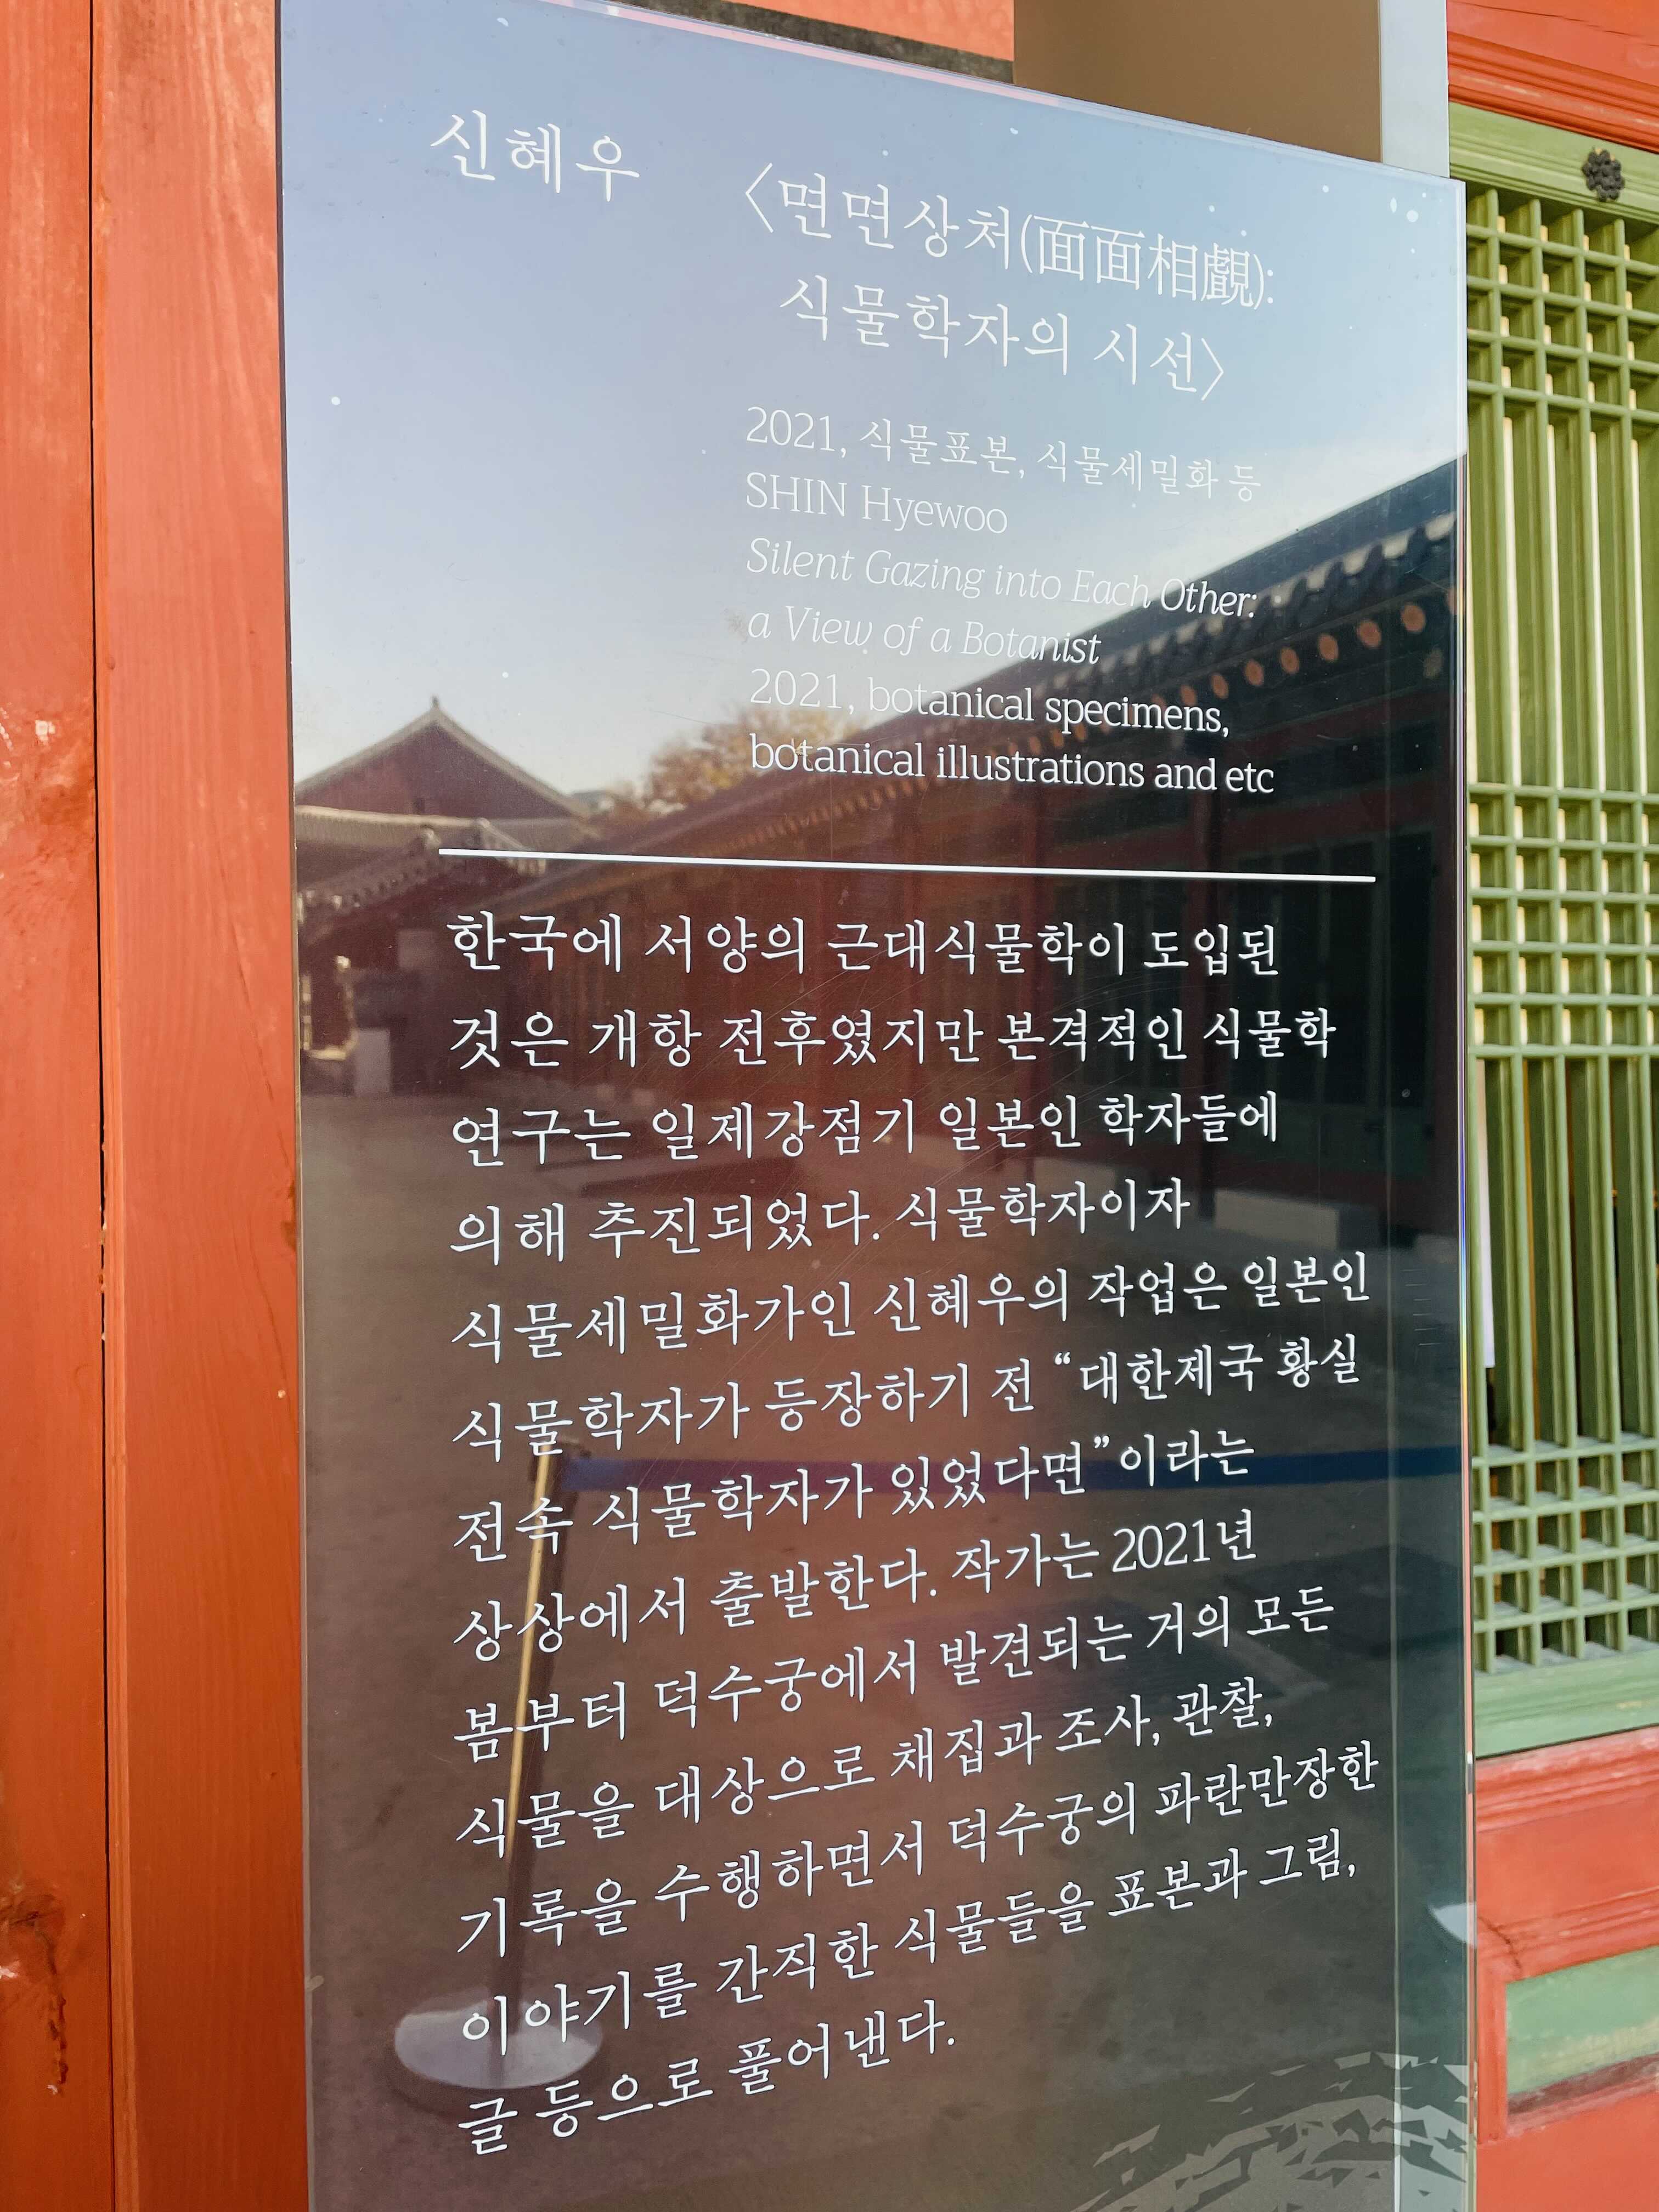 신혜우
〈면면상처(面面相覷):
식물학자의 시선〉
2021, 식물표본, 식물세밀화 등
SHIN Hyewoo
Silent Gazing into Each Other:
a View of a Botanist
2021, botanical specimens,
botanical illustrations and etc
한국에 서양의 근대식물학이 도입된
것은 개항 전후였지만 본격적인 식물학
연구는 일제강점기 일본인 학자들에
의해 추진되었다. 식물학자이자
식물세밀화가인 신혜우의 작업은 일본인
식물학자가 등장하기 전 “대한제국 황실
전속 식물학자가 있었다면”이라는
상상에서 출발한다. 작가는 2021년
봄부터 덕수궁에서 발견되는 거의 모든
식물을 대상으로 채집과 조사, 관찰,
기록을 수행하면서 덕수궁의 파란만장한
이야기를 간직한 식물들을 표본과 그림,
글 등으로 풀어낸다.